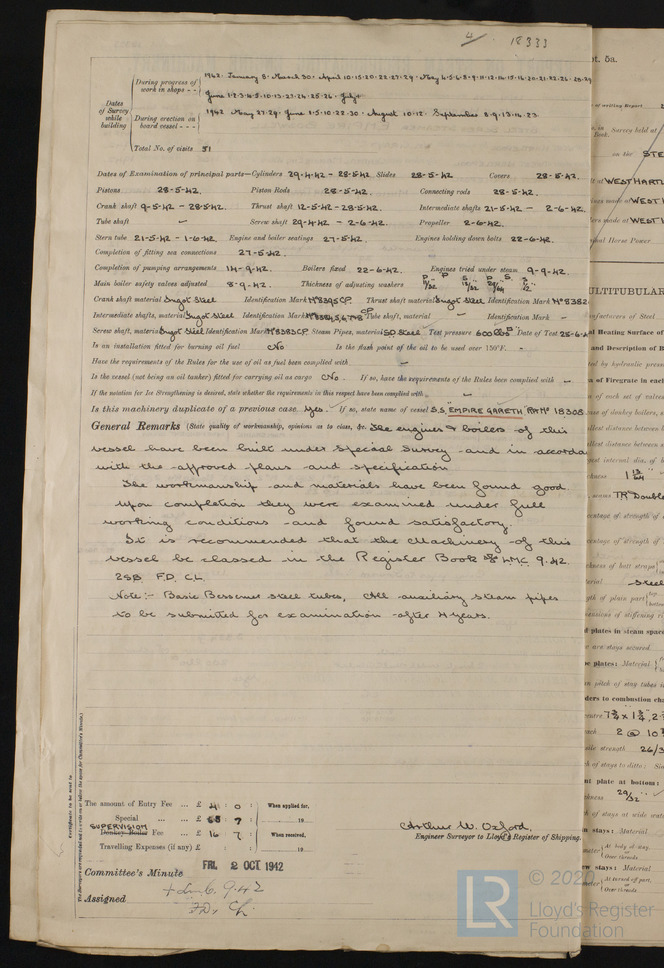 4 18333
During progress of work in shops - - 1942. January 8. March 30. April 10.15.20.22.27.29. May 4.5.6.8.9.11.12.14.15.16.20.21.22.26.28.29
June 1.2.3.4.5.10.13.
Dates of Survey while building
During erection on board vessel - - - 1942 May 27.29. June 1.5.10.22.30. August 10.12. September 8.9.13.14.23.
Total No. of visits 51
Dates of Examination of principal parts—Cylinders 29-4-42 - 28-5-42. Slides 28-5-42 Covers 28-5-42.
Pistons 28-5-42. Piston Rods 28-5-42. Connecting rods 28-5-42.
Crank shaft 9-5-42 - 28-5-42. Thrust shaft 12-5-42 - 28-5-42. Intermediate shafts 21-5-42 - 2-6-42.
Tube shaft - Screw shaft 29-4-42 - 2-6-42. Propeller 2-6-42.
Stern tube 21-5-42 - 1-6-42. Engine and boiler seatings 27-5-42. Engines holding down bolts 22-6-42.
Completion of fitting sea connections 27-5-42.
Completion of pumping arrangements 14-9-42. Boilers fixed 22-6-42. Engines tried under steam 9-9-42.
Main boiler safety valves adjusted 8-9-42. Thickness of adjusting washers
Crank shaft material Ingot Steel Identification Mark Nº8395CP. Thrust shaft material Ingot Steel Identification Mark Nº8382
Intermediate shafts, material Ingot Steel Identification Marks Tube shaft, material - Identification Mark -
Screw shaft, material Ingot Steel Identification Mark Nº8383CP. Steam Pipes, material SD Steel. Test pressure 600 lbs Date of Test 25-6-4
Is an installation fitted for burning oil fuel No Is the flash point of the oil to be used over 150°F. -
Have the requirements of the Rules for the use of oil as fuel been complied with -
Is the vessel (not being an oil tanker) fitted for carrying oil as cargo No. If so, have the requirements of the Rules been complied with -
If the notation for Ice Strengthening is desired, state whether the requirements in this respect have been complied with -
Is this machinery duplicate of a previous case Yes. If so, state name of vessel S.S. EMPIRE GARETH Rpt Nº 18308.
General Remarks (State quality of workmanship, opinions as to class, &c. The engines & boilers of this
vessel have been built under Special Survey and in accorda
with the approved plans and specification
The workmanship and materials have been found good.
Upon completion they were examined under full
working conditions and found satisfactory.
It is recommended that the Machinery of this
vessel be classed in the Register Book LMC 9.42.
2SB. F.D. C.L.
Note:- Basic Bessemer steel tubes, All auxiliary steam pipes
to be submitted for examination after 4 years.
Certificate to be sent to
The Surveyors are requested not to write on or below the space for Committee's Minute.
The amount of Entry Fee ... £ 4 : 0 : When applied for,
Special ... £ 68 : 7 : 19
SUPERVISION
Donkey Boiler Fee ... £ 16 : 7 : When received,
Travelling Expenses (if any) £ : : 19
Arthur W. Oxford.
Engineer Surveyor to Lloyd's Register of Shipping.
Committee's Minute FRI. 2 OCT 1942
Assigned + Lmc 9.42
FD, CL
pt. 5a.
of writing Report
Survey held at
on the STE
at WEST HARTL
made at WEST
made at WEST
Horse Power
ULTITUBULAR
nufacturers of Steel
al Heating Surface of
and Description of B
ed by hydraulic press
a of Firegrate in each
of each set of valves
1 13/64
TR Double
steel
7¾ x 1¾, 2
2 @ 10
26/3
29/32
© 2020
LR
Lloyd's Register
Foundation